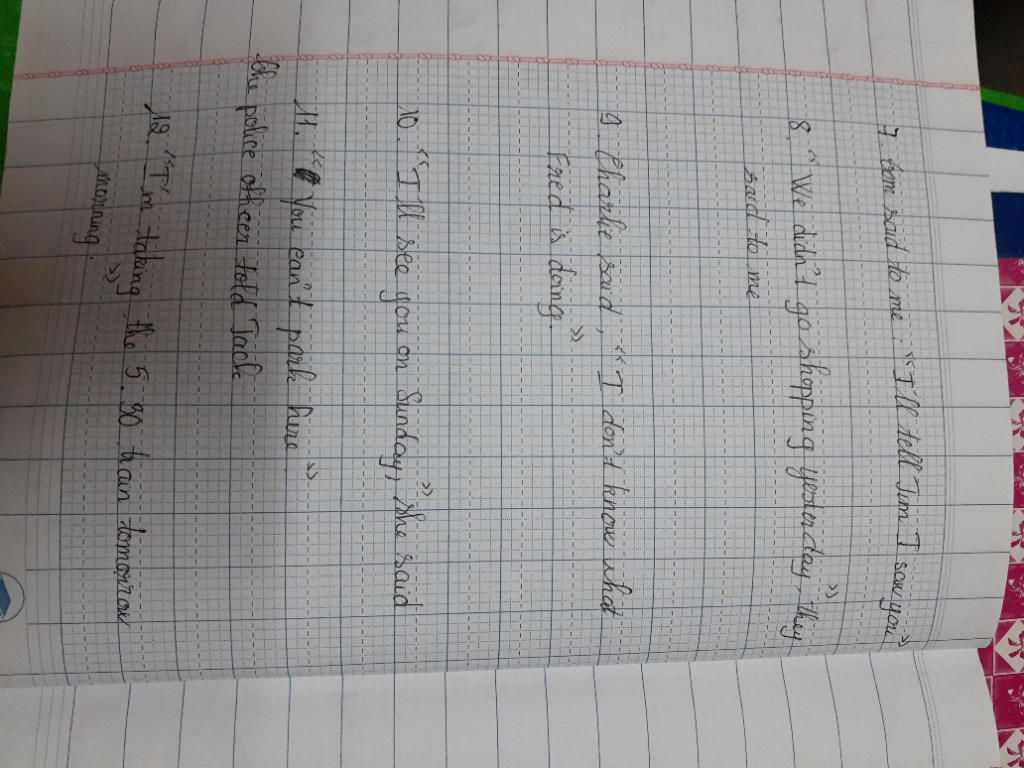 7. Tom said to me. "I'll tell Jim I saw you"
8. "We didn't go shopping yesterday," they
said to me
9. Charlie said, "I don't know what
Fred is doing."
10. "I'll see you on Sunday," she said
11. "You can't park here"
the police officer told Jack
12. "I'm taking the 5.30 train tomorrow
morning."